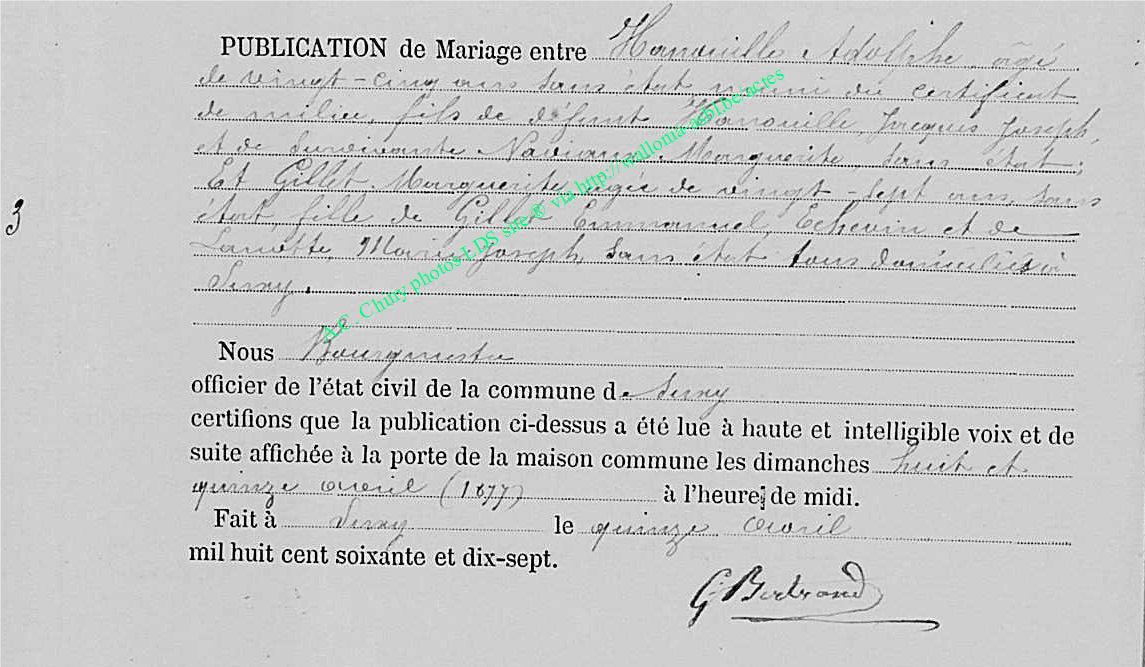 PUBLICATION de Mariage entre Hanouille Adolphe, âgé
de vingt-cinq ans sans état muni du certificat
de milice, fils de défunt Hanouille, Jacques Joseph
et de survivante Marguerite, sans état;
Et Gillet, Marguerite, agée de vingt-sept ans, sans
état, fille de Gillet Emmanuel, Echevin et de
Marie-Joseph, sans état tous domiciliés à
3
Nous Bourgmestre
officier de l'état civil de la commune de
certifions que la publication ci-dessus a été lue à haute et intelligible voix et de
suite affichée à la porte de la maison commune les dimanches huit et
quinze avril (1877) à l'heure de midi.
Fait à le quinze avril
mil huit cent soixante et dix-sept.
G Bertrand
A.C. Chury photos LDS site® via http://wallonia-asbl.be/actes